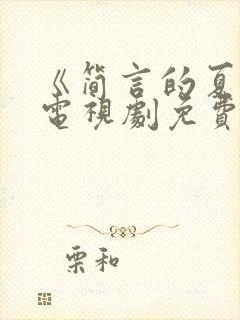 《简言的夏
电视剧免费
栗和